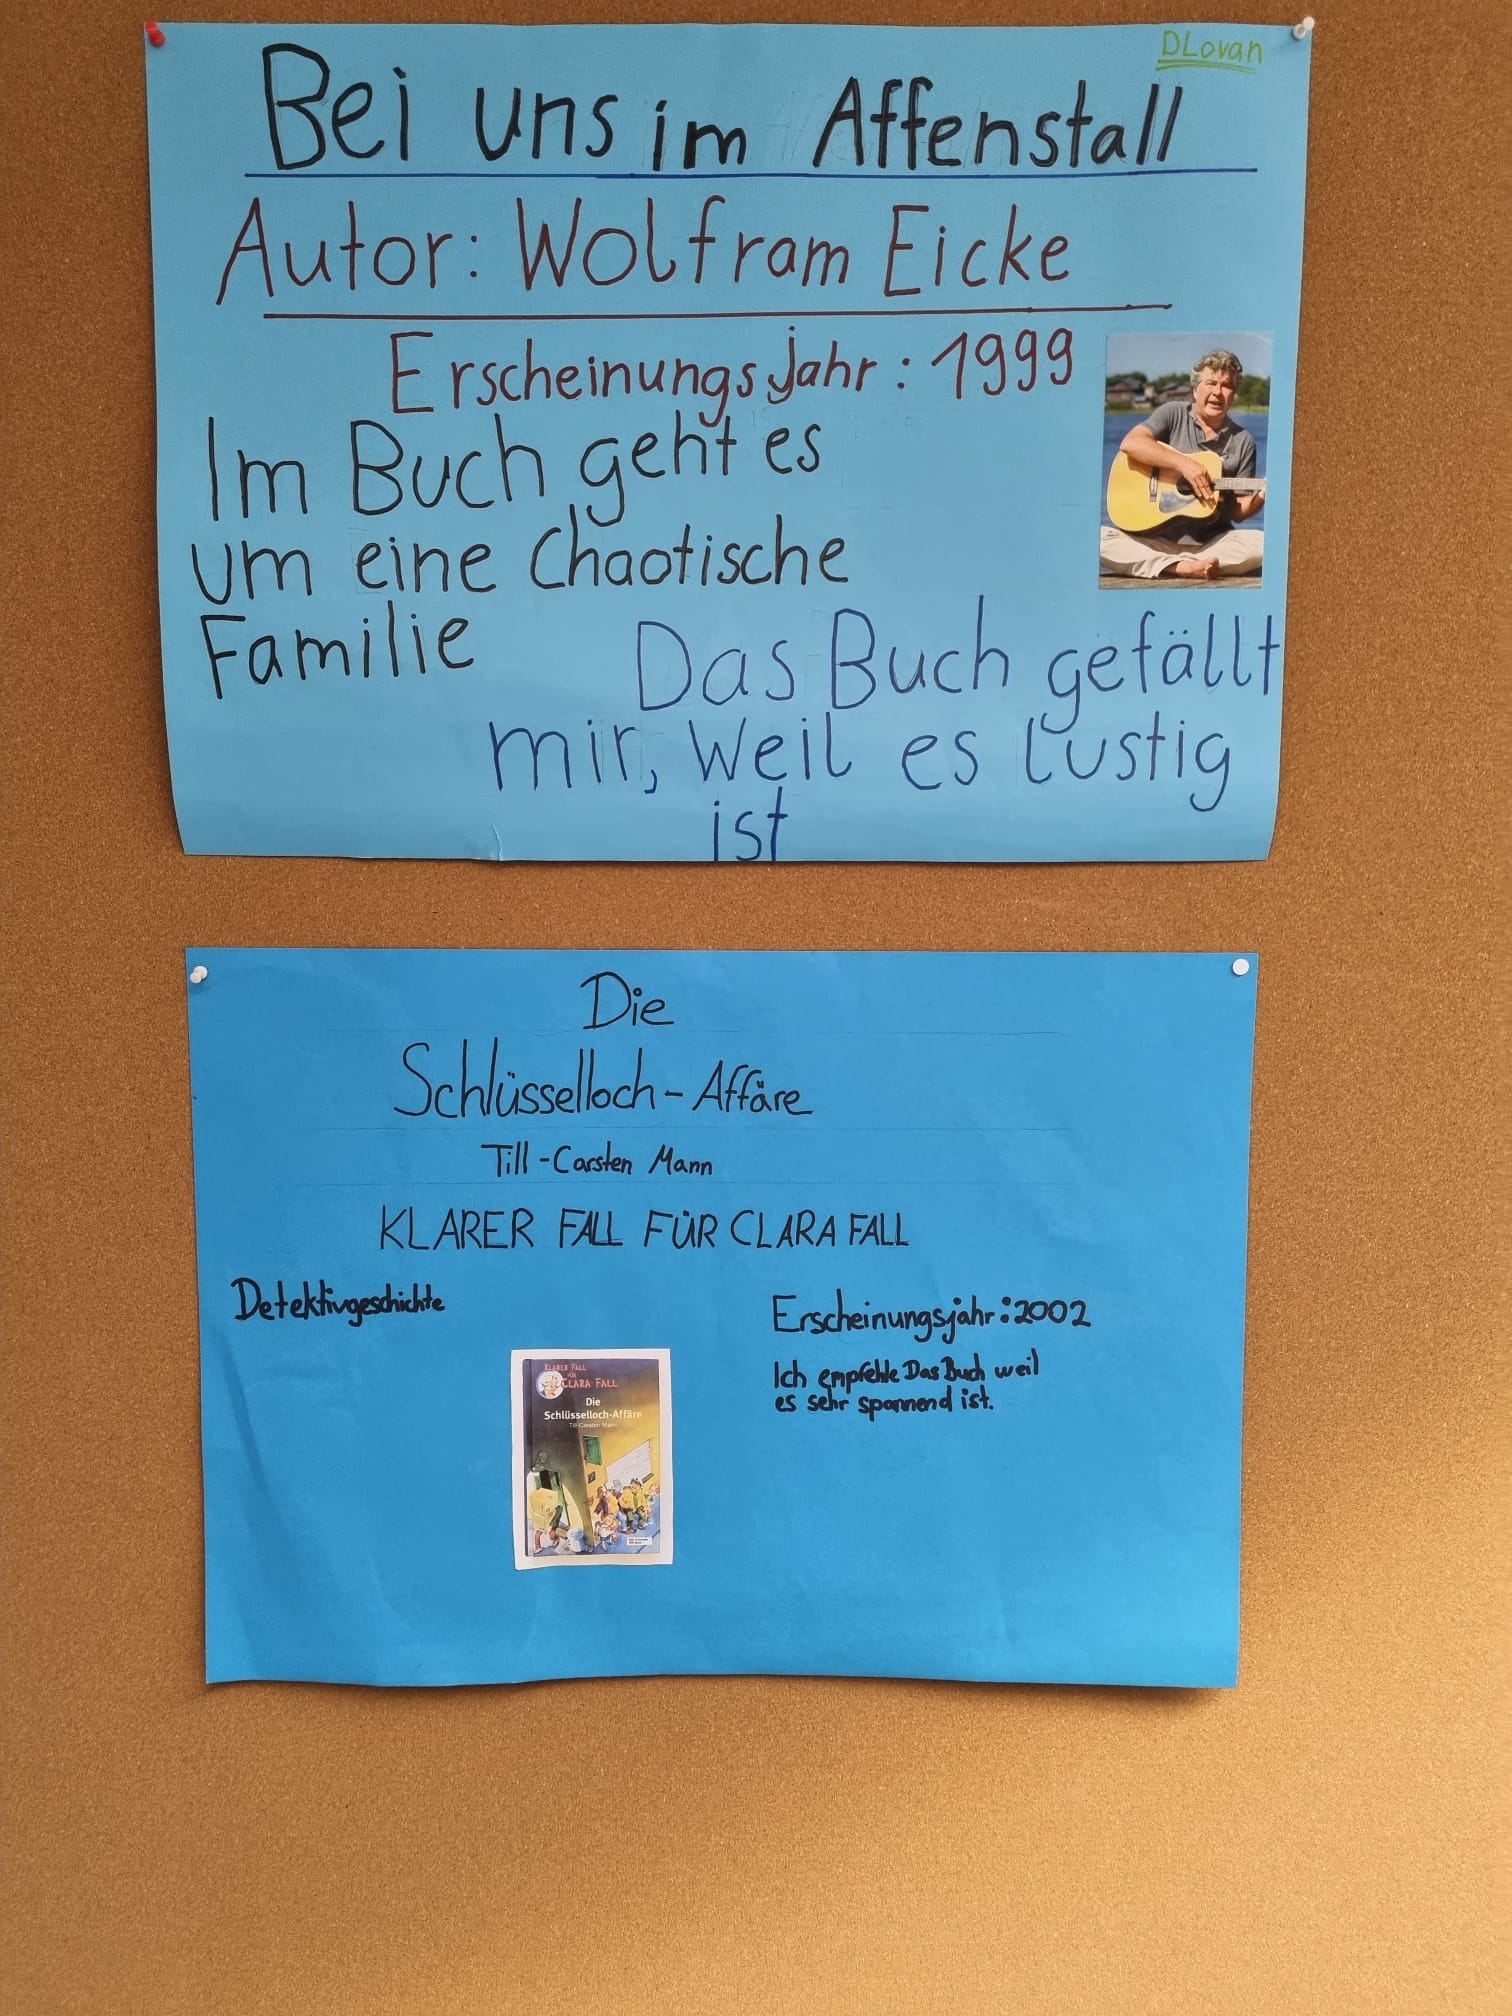 DLovan
Bei uns im Affenstall
Autor: Wolfram Eicke
Erscheinungsjahr: 1999
Im Buch geht es
um eine Chaotische
Familie
Das Buch gefällt
mir, weil es lustig
ist
Die
Schlüsselloch-Affäre
Till-Carsten Mann
KLARER FALL FÜR CLARA FALL
Detektivgeschichte
Erscheinungsjahr: 2002
Ich empfehle Das Buch weil
es sehr spannend ist.
KLARER FALL
FÜR
CLARA FALL
Die
Schlüsselloch-Affäre
Till-Carsten Mann